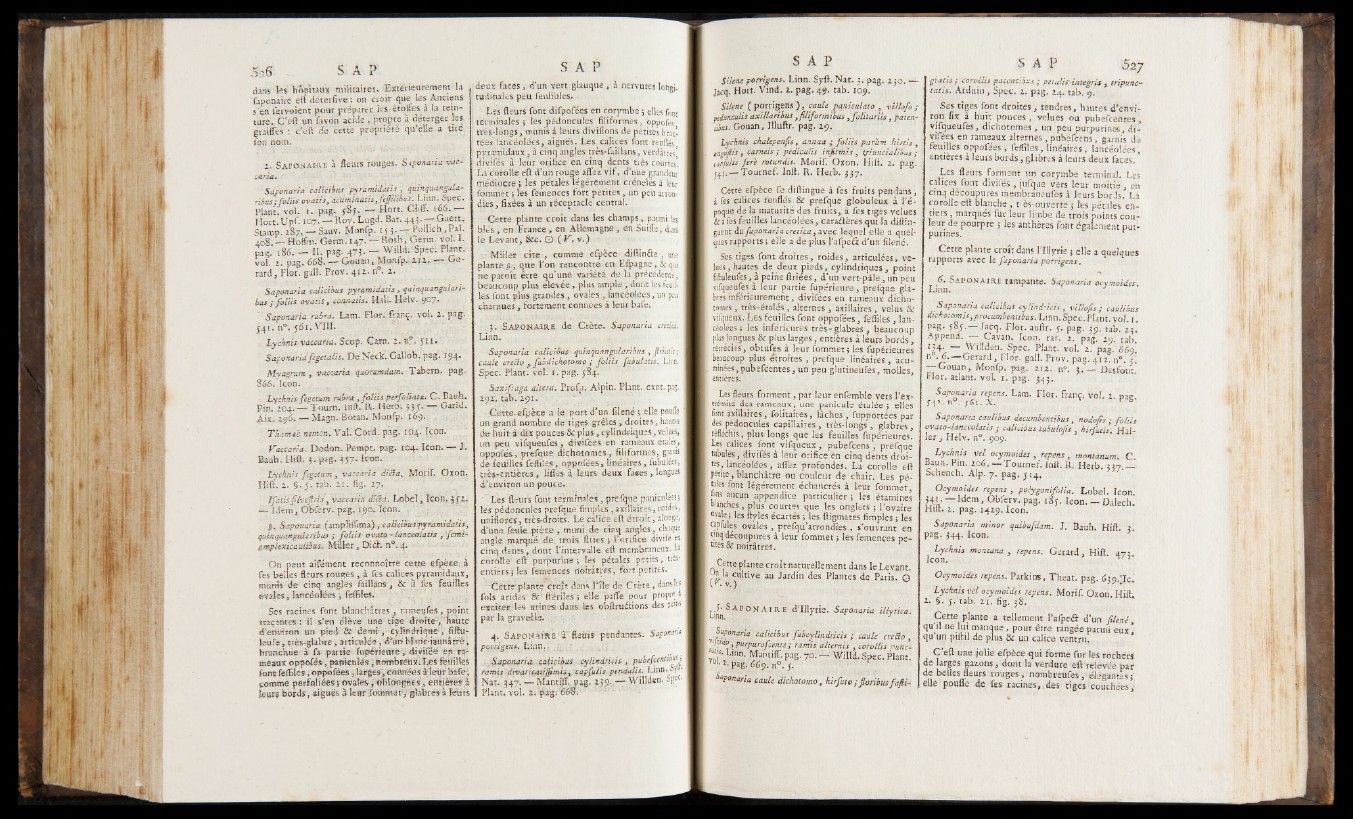 526 S A P
dans les hôpitaux militaires. Extérieurement la
saponaire est détersive : on croit que les Anciens
s'en servoient pour préparer les étoffes à la tein-
ture. C'est un savon acide, propre à déterger les
graisses : c'est de cette propriété qu'elle a tiré
son nom.
2. SAPONAIRE à fleurs rouges. Saponaria vac-
caria.
Saponaria calicibus pyramidatis, quinquangula-
ribus ; foliis ovatis, acuminatis, sessilibus. Linn. Spec.
Plant. vol. 1. pag. 585. — Hort. Cliff. 166. —
Hort. Upf. 107. — Roy. Lugd. Bat. 443. — Guett.
Stamp. 287. — Sauv. Monsp. 153. — Pollich, Pal.
408. — Hoffm. Germ. 147. — Roth, Germ. vol. I.
pag. 186. — II. pag. 473. — Willd. Spec. Plant.
vol. 2. pag. 668. — Gouan, Monsp. 212. — Ge-
rard, Flor. gall. Prov. 412. n°. 2.
Saponaria calicibus pyramidatis, quinquangulari-
bus ; foliis ovatis, connatis. Hall. Helv. 907.
Saponaria rubra. Lam. Flor. franç. vol. 2. pag.
541. n°. 561. VIII.
Lychnis vaccaria. Scop. Carn. 2. n°. 511.
Saponaria segetalis. De Neck. Gallob. pag. 194.
Myagrum, vaccaria quorumdam. Tabern. pag.
866. Icon.
Lychnis segetum rubra, foliis perfoliatæ. C. Bauh.
Pin. 204. — Tourn. Inst. R. Herb. 335. — Garid.
Aix. 296. — Magn. Botan. Monsp. 169.
Thamec nemon. Val. Cord. pag. 104. Icon.
Vaccaria. Dodon. Pempt. pag. 104. Icon. — J.
Bauh. Hist. 3. pag. 357. Icon.
Lychnis segetum, vaccaria dicta. Morif. Oxon.
Hist. 2. §. 5. tab. 21. fig. 27.
Isatis silvestris, vaccaria dicta. Lobel, Icon. 352.
— Idem, Observ. pag. 190. Icon.
β. Saponaria (amplissima), calicibus pyramidatis,
quinquangularibus ; foliis ovato-lanceolatis, semi-
amplexicaulibus. Miller, Dict. n°. 4.
On peut aisément reconnoître cette espèce à
ses belles fleurs rouges, à ses calices pyramidaux,
munis de cinq angles saillans, & à ses feuilles
ovales, lancéolées, sessiles.
Ses racines sont blanchâtres, rameuses, point
traçantes : il s'en élève une tige droite, haute
d'environ un pied & demi, cylindrique, fistu-
leuse, très-glabre, articulée, d'un blanc-jaunâtre,
branchue à sa partie supérieure, divisée en ra-
meaux opposés, paniculés, nombreux. Les feuilles
sont sessiles, opposées, larges, connées à leur base,
comme perfoliées ; ovales, oblongues, entières à
leurs bords, aiguës à leur sommet, glabres à leurs
S A P
deux faces, d'un vert glauque, à nervures longi-
tudinales peu sensibles.
Les fleurs sont disposées en corymbe ; elles sont
terminales ; les pédoncules filiformes, opposés,
très-longs, munis à leurs divisions de petites brac-
tées lancéolées, aiguës. Les calices sont renflés,
pyramidaux, à cinq angles très-saillans, verdâtres,
divisés à leur orifice en cinq dents très courtes.
La corolle est d'un rouge assez vif, d'une grandeur
médiocre ; les pétales légérement crénelés à leur
sommet ; les semences fort petites, un peu arron-
dies, fixées à un réceptacle central.
Cette plante croît dans les champs, parmi les
blés, en France, en Allemagne, en Suisse, dans
le Levant, &c. ☉ (V. v.)
Miller cite, comme espèce distincte, une
plante β, que l'on rencontre en Espagne, & qui
ne paroît être qu'une variété de la précédente,
beaucoup plus élevée, plus ample, dont les feuil-
les sont plus grandes, ovales, lancéolées, un peu
charnues, fortement connées à leur base.
3. SAPONAIRE de Crète. Saponaria cretica.
Linn.
Saponaria calicibus quinquangularibus, striatis ;
caule erecto, subdichotomo ; foliis subulatis. Linn.
Spec. Plant. vol. 1. pag. 584.
Saxifraga altera. Prosp. Alpin. Plant. exot. pag.
292. tab. 291.
Cette espèce a le port d'un silené ; elle pousse
un grand nombre de tiges grêles, droites, hautes
de huit à dix pouces & plus, cylindriques, velues,
un peu visqueuses, divisées en rameaux étalés,
opposés, presque dichotomes, filiformes, garnis
de feuilles sessiles, opposées, linéaires, subulées,
très-entières, lisses à leurs deux faces, longues
d'environ un pouce.
Les fleurs sont terminales, presque paniculées ;
les pédoncules presque simples, axillaires, roides,
uniflores, très-droits. Le calice est étroit, alongé,
d'une seule pièce, muni de cinq angles, chaque
angle marqué de trois stries ; l'orifice divisé en
cinq dents, dont l'intervalle est membraneux. La
corolle est purpurine ; les pétales petits, très-
entiers ; les semences noirâtres, fort petites.
Cette plante croît dans l'île de Crète, dans les
sols arides & stériles ; elle passe pour propre à
exciter les urines dans les obstructions des reins
par la gravelle.
4. SAPONAIRE à fleurs pendantes. Saponaria
porrigens. Linn.
Saponaria calicibus cylindricis, pubescentibus ;
ramis divaricatissimis, capsulis pendulis. Linn. Syst.
Nat. 347. — Mantiss. pag. 239. — Willden. Spec.
Plant. vol. 2. pag. 668.
S A P
Silene porrigens. Linn. Syst. Nat. 3. pag. 230. —
Jacq. Hort. Vind. 2. pag. 49. tab. 109.
Silene (porrigens), caule paniculato, villoso ;
pedunculis axillaribus, filiformibus, solitariis, paten-
tibus. Gouan, Illustr. pag. 29.
Lychnis chalepensis, annua ; foliis parùm hirsis,
angustis, carneis ; pediculis infirmis, triuncialibus ;
capsulis ferè rotundis. Morif. Oxon. Hist. 2. pag.
541. — Tournef. Inst. R. Herb. 337.
Cette espèce se distingue à ses fruits pendans,
à ses calices renflés & presque globuleux à l'é-
poque de la maturité des fruits, à ses tiges velues
& à ses feuilles lancéolées, caractères qui la distin-
guent du saponaria cretica, avec lequel elle a quel-
ques rapports ; elle a de plus l'aspect d'un silené.
Ses tiges sont droites, roides, articulées, ve-
lues, hautes de deux pieds, cylindriques, point
fistuleuses, à peine striées, d'un vert-pâle, un peu
visqueuses à leur partie supérieure, presque gla-
bres inférieurement, divisées en rameaux dicho-
tomes, très-étalés, alternes, axillaires, velus &
visqueux. Les feuilles sont opposées, sessiles, lan-
céolées ; les inférieures très-glabres, beaucoup
plus longues & plus larges, entières à leurs bords,
rétrécies, obtuses à leur sommet ; les supérieures
beaucoup plus étroites, presque linéaires, acu-
minées, pubescentes, un peu glutineuses, molles,
entières.
Les fleurs forment, par leur ensemble vers l'ex-
trémité des rameaux, une panicule étalée ; elles
sont axillaires, solitaires, lâches, supportées par
des pédoncules capillaires, très-longs, glabres,
réfléchis, plus longs que les feuilles supérieures.
Les calices sont visqueux, pubescens, presque
tubulés, divisés à leur orifice en cinq dents droi-
tes, lancéolées, assez profondes. La corolle est
petite, blanchâtre ou couleur de chair. Les pé-
tales sont légérement échancrés à leur sommet,
sans aucun appendice particulier ; les étamines
blanches, plus courtes que les onglets ; l'ovaire
ovale ; les styles écartés ; les stigmates simples ; les
capsules ovales, presqu'arrondies, s'ouvrant en
cinq découpures à leur sommet ; les semences pe-
tites & noirâtres.
Cette plante croît naturellement dans le Levant.
On la cultive au Jardin des Plantes de Paris. ☉
(V. v.)
5. SAPONAIRE d'Illyrie. Saponaria illyrica.
Linn.
Saponaria calicibus subcylindricis ; caule erecto,
viscido, purpurascente ; ramis alternis, corollis punc-
tatis. Linn. Mantiss. pag. 70. — Willd. Spec. Plant.
vol. 2. pag. 669. n°. 5.
Saponaria caule dichotomo, hirsuto ; floribus fasti-
S A P 527
giatis ; corollis patentibus ; petalis integris, tripunc-
tatis. Arduin, Spec. 2. pag. 24. tab. 9.
Ses tiges sont droites, tendres, hautes d'envi-
ron six à huit pouces, velues ou pubescentes,
visqueuses, dichotomes, un peu purpurines, di-
visées en rameaux alternes, pubescens, garnis de
feuilles opposées, sessiles, linéaires, lancéolées,
entières à leurs bords, glabres à leurs deux faces.
Les fleurs forment un corymbe terminal. Les
calices sont divisés, jusque vers leur moitié, en
cinq découpures membraneuses à leurs bords. La
corolle est blanche, très-ouverte ; les pétales en-
tiers, marqués sur leur limbe de trois points cou-
leur de pourpre ; les anthères sont également pur-
purines.
Cette plante croît dans l'Illyrie ; elle a quelques
rapports avec le saponaria porrigens.
6. SAPONAIRE rampante. Saponaria ocymoides.
Linn.
Saponaria calicibus cylindricis, villosis ; caulibus
dichotomis, procumbentibus. Linn. Spec. Plant. vol. 1.
pag. 585. — Jacq. Flor. austr. 5. pag. 39. tab. 23.
Append. — Cavan. Icon. rar. 2. pag. 29. tab.
134. — Willden. Spec. Plant. vol. 2. pag. 669.
n°. 6. — Gerard, Flor. gall. Prov. pag. 412. n°. 3.
— Gouan, Monsp. pag. 212. n°. 3. — Desfont.
Flor. atlant. vol. 1. pag. 343.
Saponaria repens. Lam. Flor. franç. vol. 2. pag.
542. n°. 561. X.
Saponaria caulibus decumbentibus, nodosis ; foliis
ovato-lanceolatis ; calicibus tubulosis, hirsutis. Hal-
ler, Helv. n°. 909.
Lychnis vel ocymoides, repens, montanum. C.
Bauh. Pin. 206. — Tournef. Inst. R. Herb. 337. —
Scheuch. Alp. 7. pag. 514.
Ocymoides repens, polygonifolia. Lobel. Icon.
341. — Idem, Observ. pag. 185. Icon. — Dalech.
Hist. 2. pag. 1429. Icon.
Saponaria minor quibusdam. J. Bauh. Hist. 3.
pag. 344. Icon.
Lychnis montana, repens. Gerard, Hist. 473.
Icon.
Ocymoides repens. Parkins, Theat. pag. 639. Ic.
Lychnis vel ocymoides repens. Morif. Oxon. Hist.
2. §. 5. tab. 21. fig. 38.
Cette plante a tellement l'aspect d'un silené,
qu'il ne lui manque, pour être rangée parmi eux,
qu'un pistil de plus & un calice ventru.
C'est une jolie espèce qui forme sur les rochers
de larges gazons, dont la verdure est relevée par
de belles fleurs rouges, nombreuses, élégantes ;
elle pousse de ses racines, des tiges couchées,